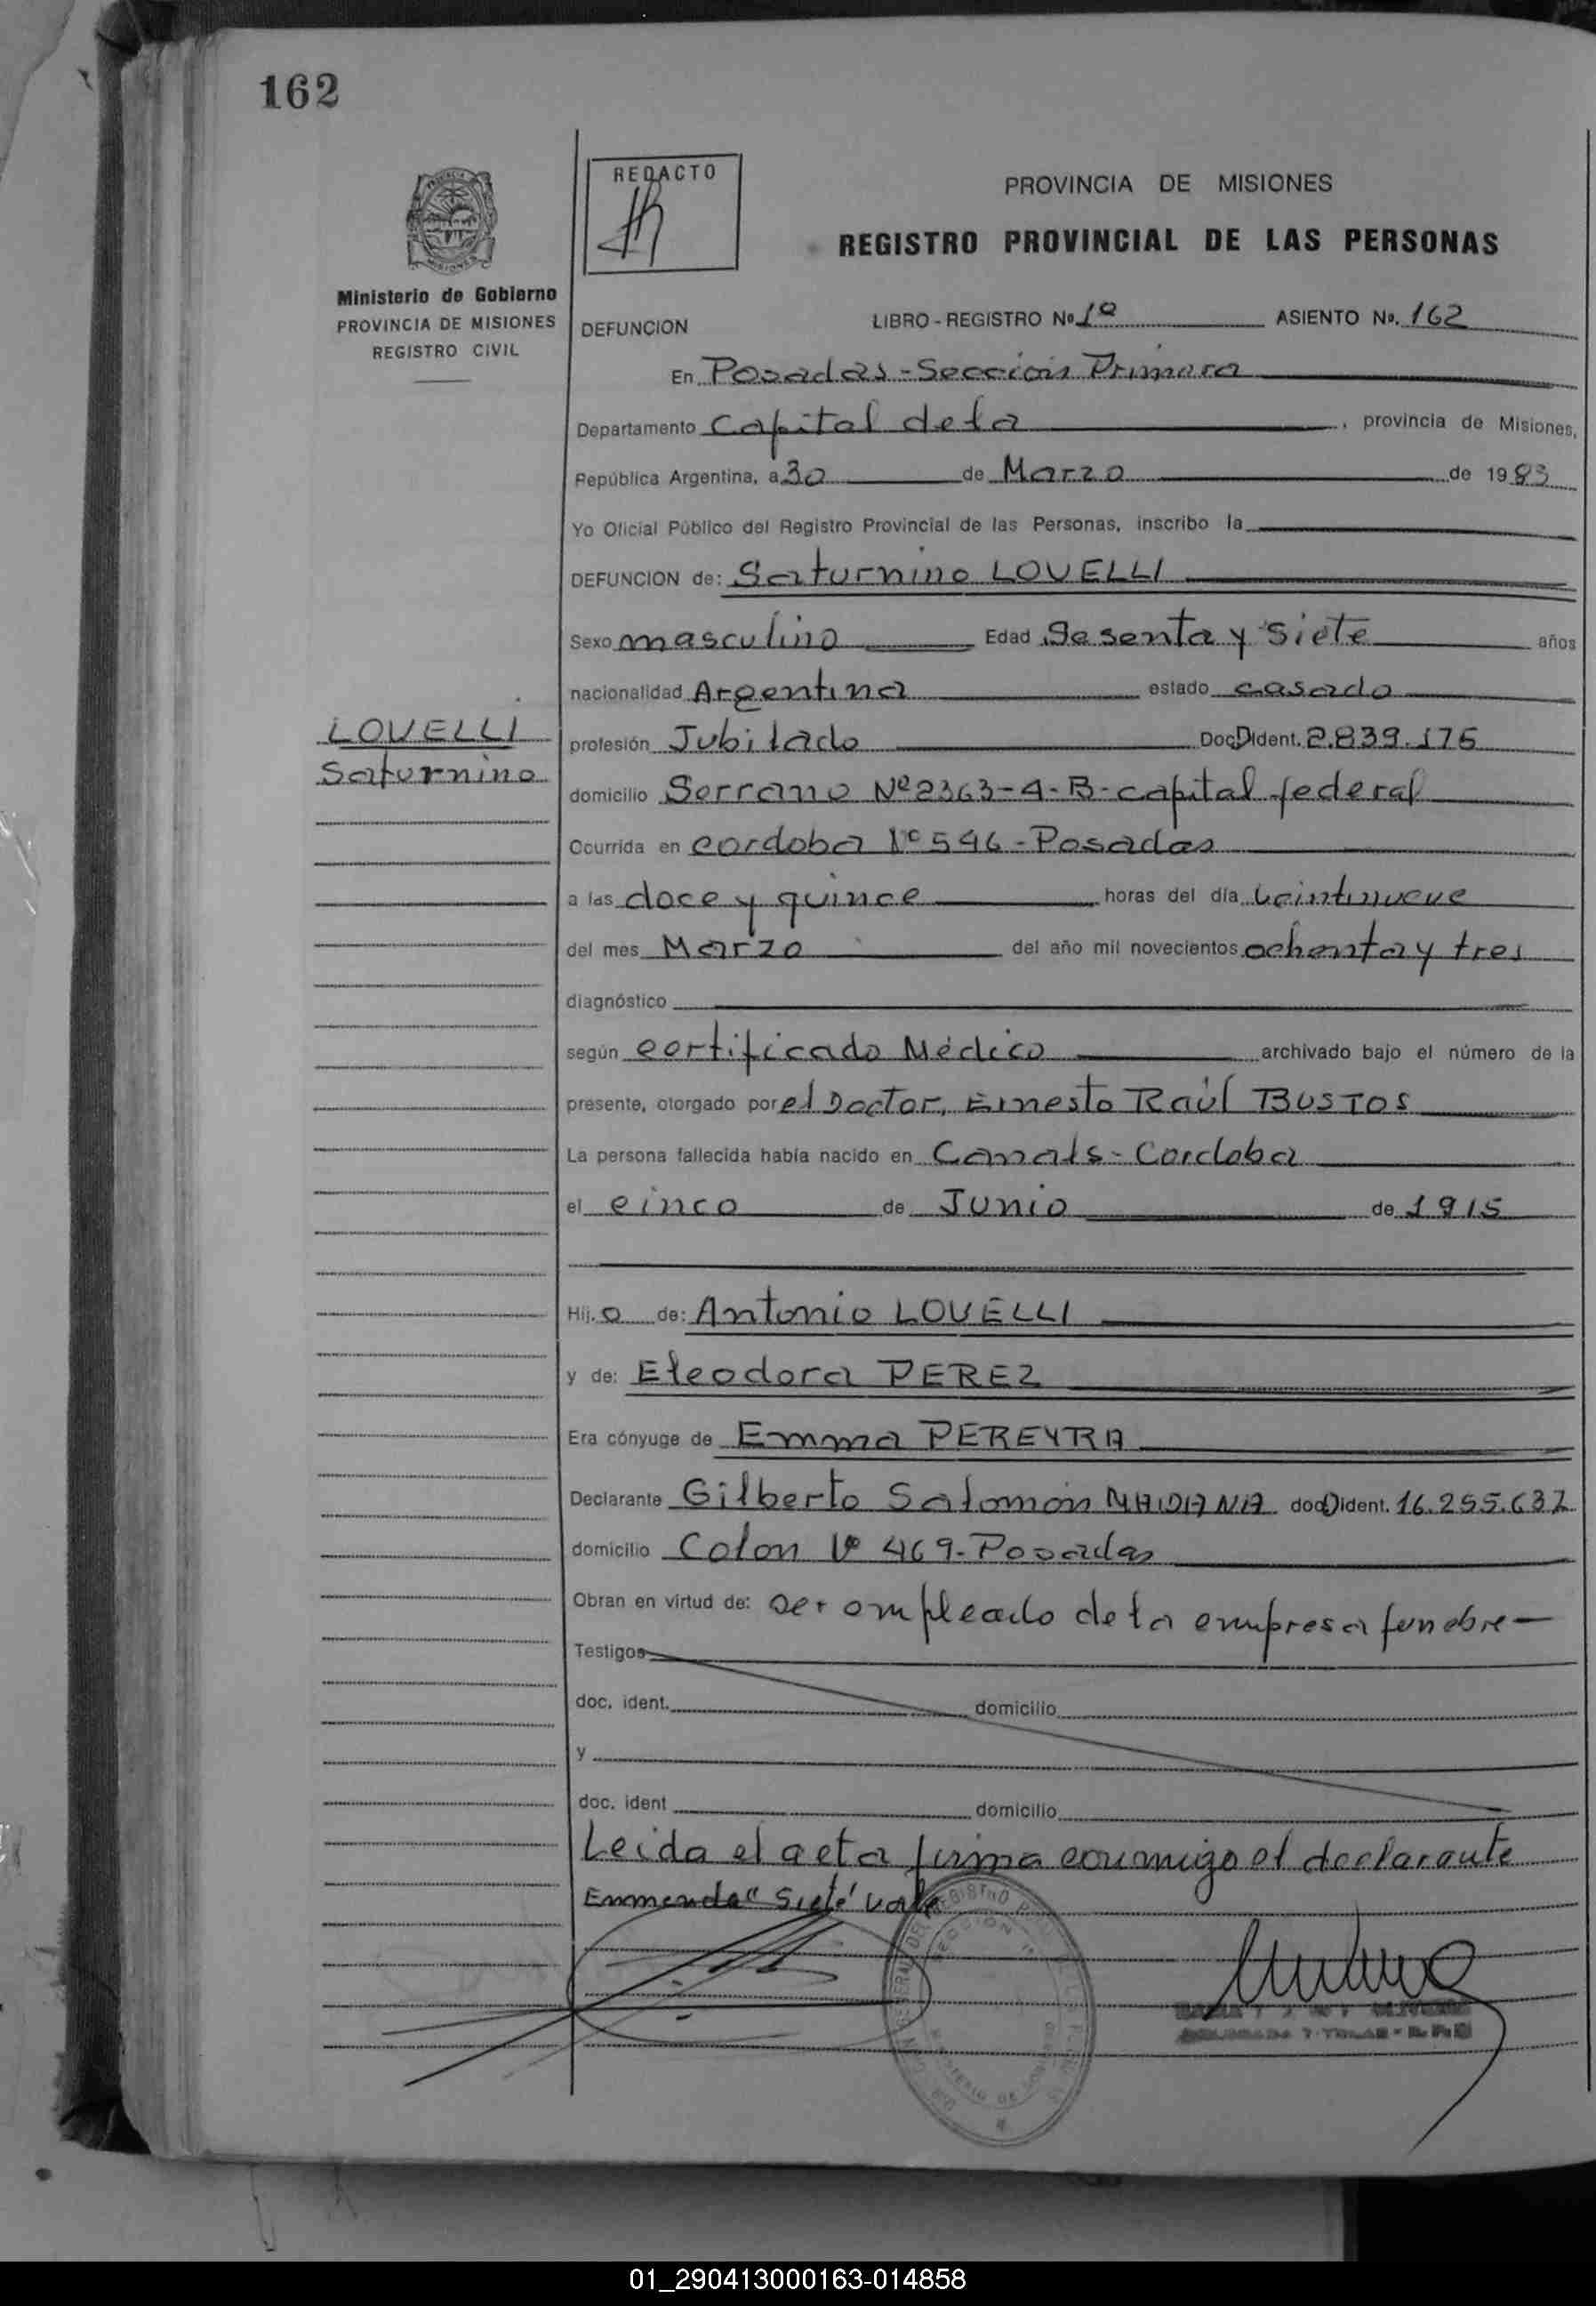 162
REDACTO
PROVINCIA DE MISIONES
REGISTRO PROVINCIAL DE LAS PERSONAS
Ministerio de Gobierno
PROVINCIA DE MISIONES
REGISTRO CIVIL
DEFUNCION LIBRO - REGISTRO Nº 1º ASIENTO Nº. 162
En Posadas - Sección Primera
Departamento Capital de la , provincia de Misiones,
República Argentina, a 30 de Marzo de 1983
Yo Oficial Público del Registro Provincial de las Personas, inscribo la
DEFUNCION de: Saturnino LOVELLI
Sexo masculino Edad Sesenta y Siete años
nacionalidad Argentina estado casado
LOVELLI
Saturnino
profesión Jubilado Doc. Ident. 2.839.175
domicilio Serrano Nº 2363 - 4 - B - capital federal
Ocurrida en cordoba Nº 546 - Posadas
a las doce y quince horas del día veintinueve
del mes Marzo del año mil novecientos ochenta y tres
diagnóstico
según certificado Médico archivado bajo el número de la
presente, otorgado por el Doctor, Ernesto Raúl BUSTOS
La persona fallecida había nacido en Canals - Cordoba
el cinco de Junio de 1915
Hij. o de: Antonio LOVELLI
y de: Eleodora PEREZ
Era cónyuge de Emma PEREYRA
Declarante Gilberto Salomón MAIDANA doc. ident. 16.255.632
domicilio Colon Nº 469 - Posadas
Obran en virtud de: ser empleado de la empresa funebre -
Testigos
doc. ident. domicilio
y
doc. ident domicilio
Leida el acta firma conmigo el declarante
Enmenda "Siete" vale
01_290413000163-014858